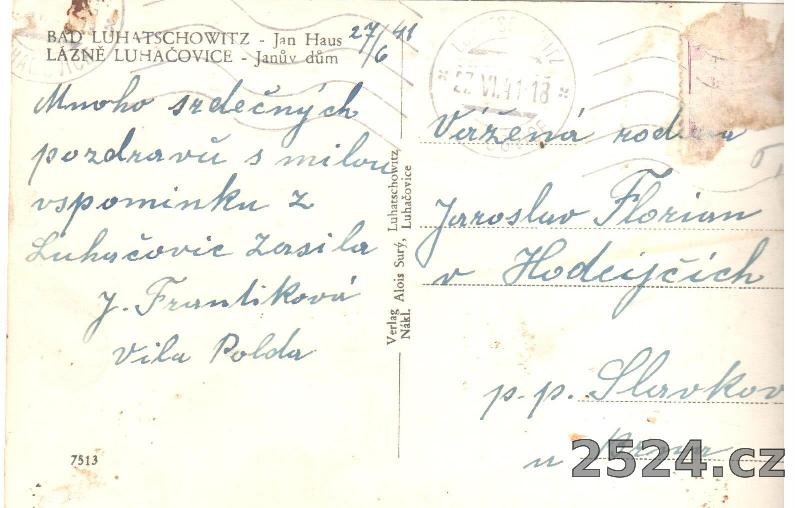 BAD LUHATSCHOWITZ - Jan Haus
LÁZNĚ LUHAČOVICE - Janův dům
27/6 41
Mnoho srdečných
pozdravů s milou
vspomínku z
Luhačovic zasila
J. Frantiková
Vila Polda
7513
Verlag Alois Surý, Luhatschowitz
Nákl. Luhačovice
27.VI.41-18
Vážená rodina
Jaroslav Florian
v Hodějčích
p.p. Slavkov
u Brna
2524.cz